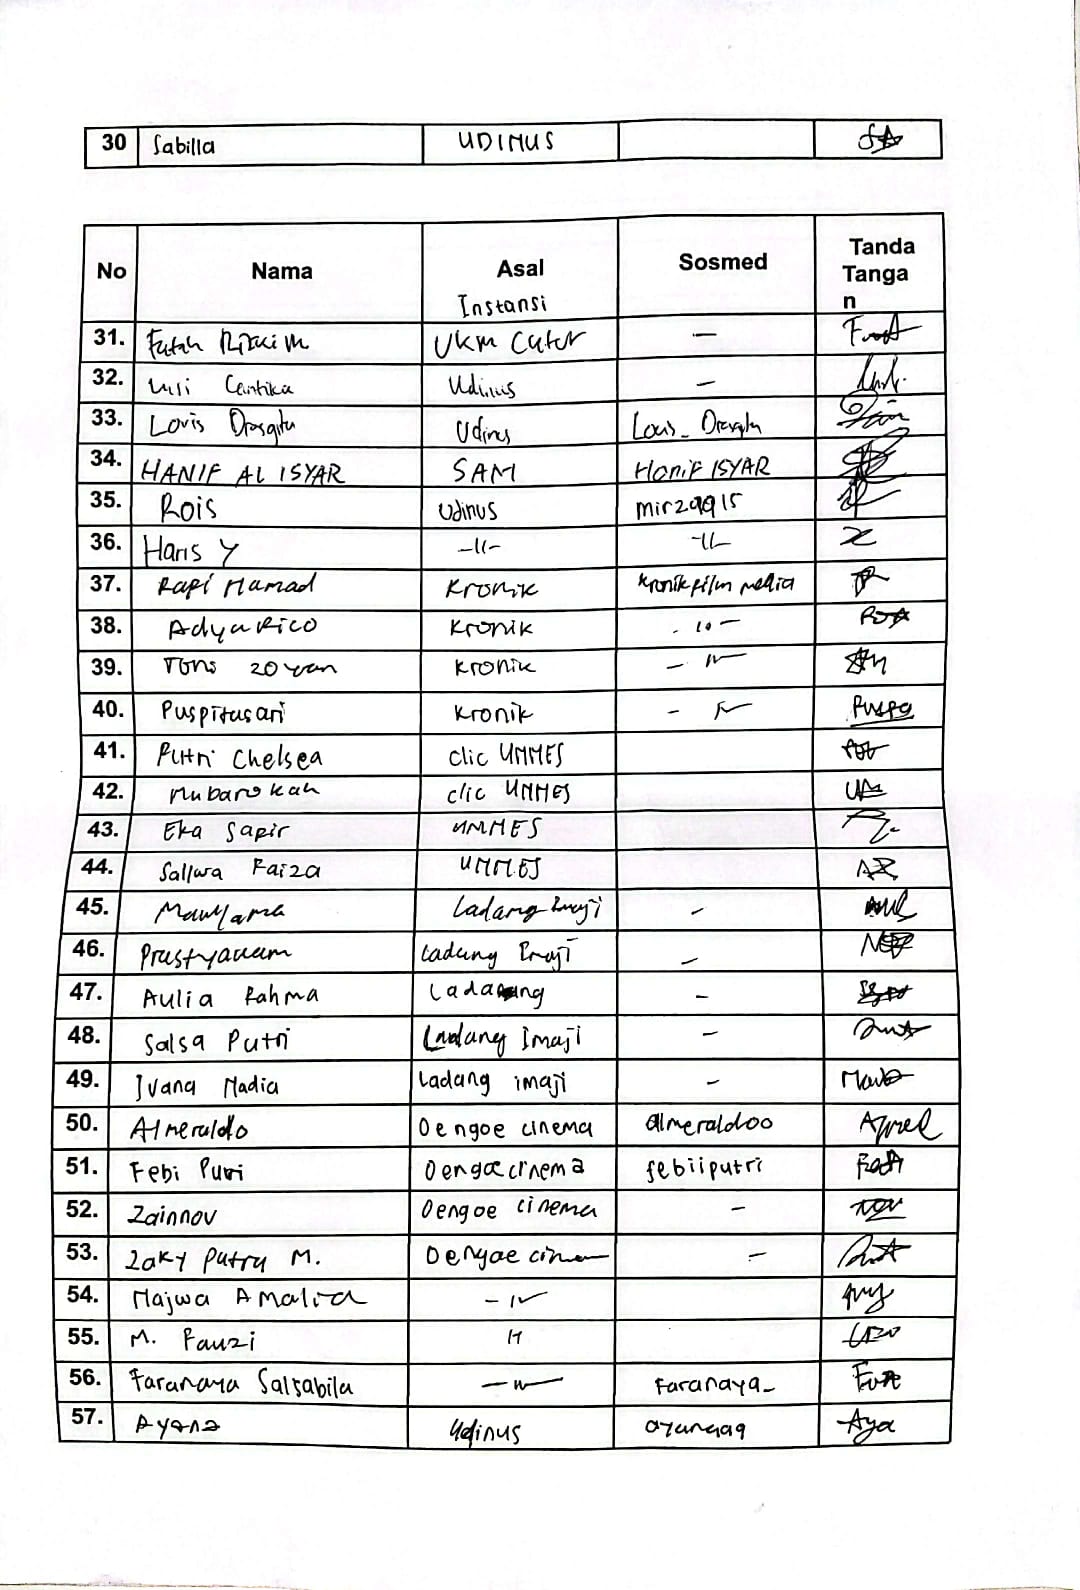 30 Sabilla UDINUS
No Nama Asal Instansi Sosmed Tanda Tangan
31. Fatah Rizki M UKM Catur -
32. Cantika Udinus -
33. Louis Udinus Louis_
34. HANIF AL ISYAR SAM Hanif ISYAR
35. Rois Udinus mirzaqq15
36. Haris Y -11- -11-
37. Rapi Hamad Kronik kronikfilm media
38. Adya Rico Kronik - 11 -
39. Kronik - 11 -
40. Puspitasari Kronik - 11 - Puspa
41. Putri Chelsea clic UNNES
42. Mubarokah clic UNNES
43. Eka Sapir UNNES
44. Sallwa Faiza UNNES
45. Ladang Imaji -
46. Ladang Imaji -
47. Aulia Rahma -
48. Salsa Putri Ladang Imaji -
49. Ivana Nadia Ladang imaji -
50. Almeraldo Dengoe cinema almeraldoo
51. Febi Putri Dengoe cinema febiiputri
52. Zainnov Dengoe cinema -
53. Zaky Putra M. Dengoe -
54. Najwa Amalia - 11 -
55. M. Fauzi 11
56. Faranaya Salsabila - 11 - faranaya_
57. Ayana Udinus Aya